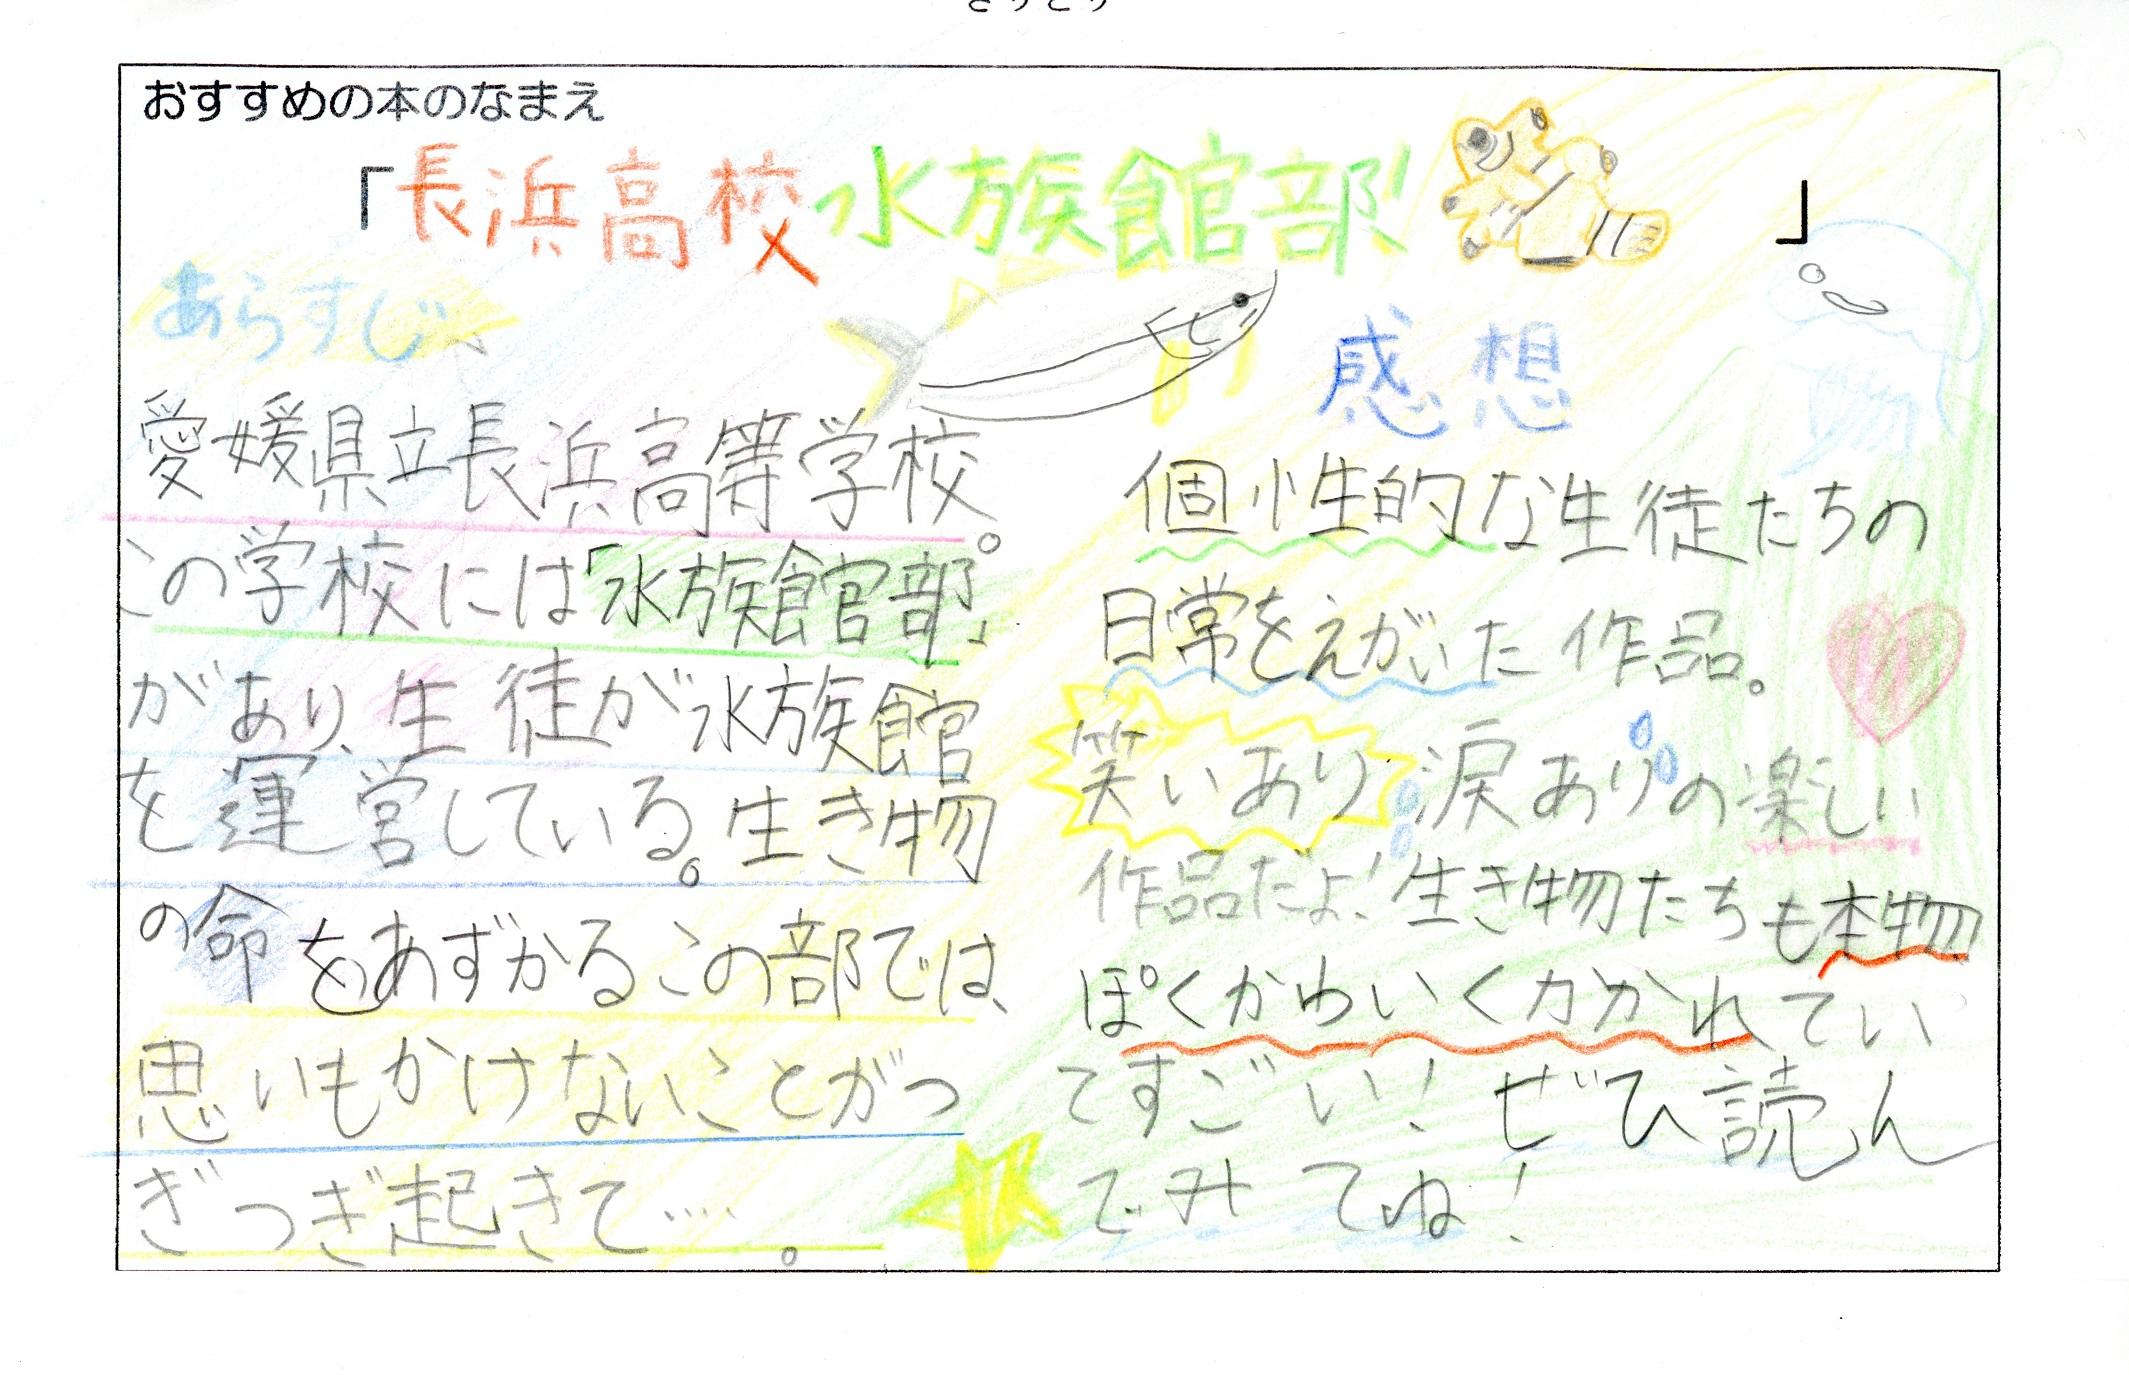 きりとり
おすすめの本のなまえ
「長浜高校水族館部！」
あらすじ
愛媛県立長浜高等学校。
この学校には「水族館部」
があり、生徒が水族館
を運営している。生き物
の命をあずかるこの部では、
思いもかけないことがつ
ぎつぎ起きて….。
感想
個性的な生徒たちの
日常をえがいた作品。
笑いあり涙ありの楽しい
作品だよ！生き物たちも本物
ぽくかわいくかかれてい
てすごい！ぜひ読ん
でみてね！